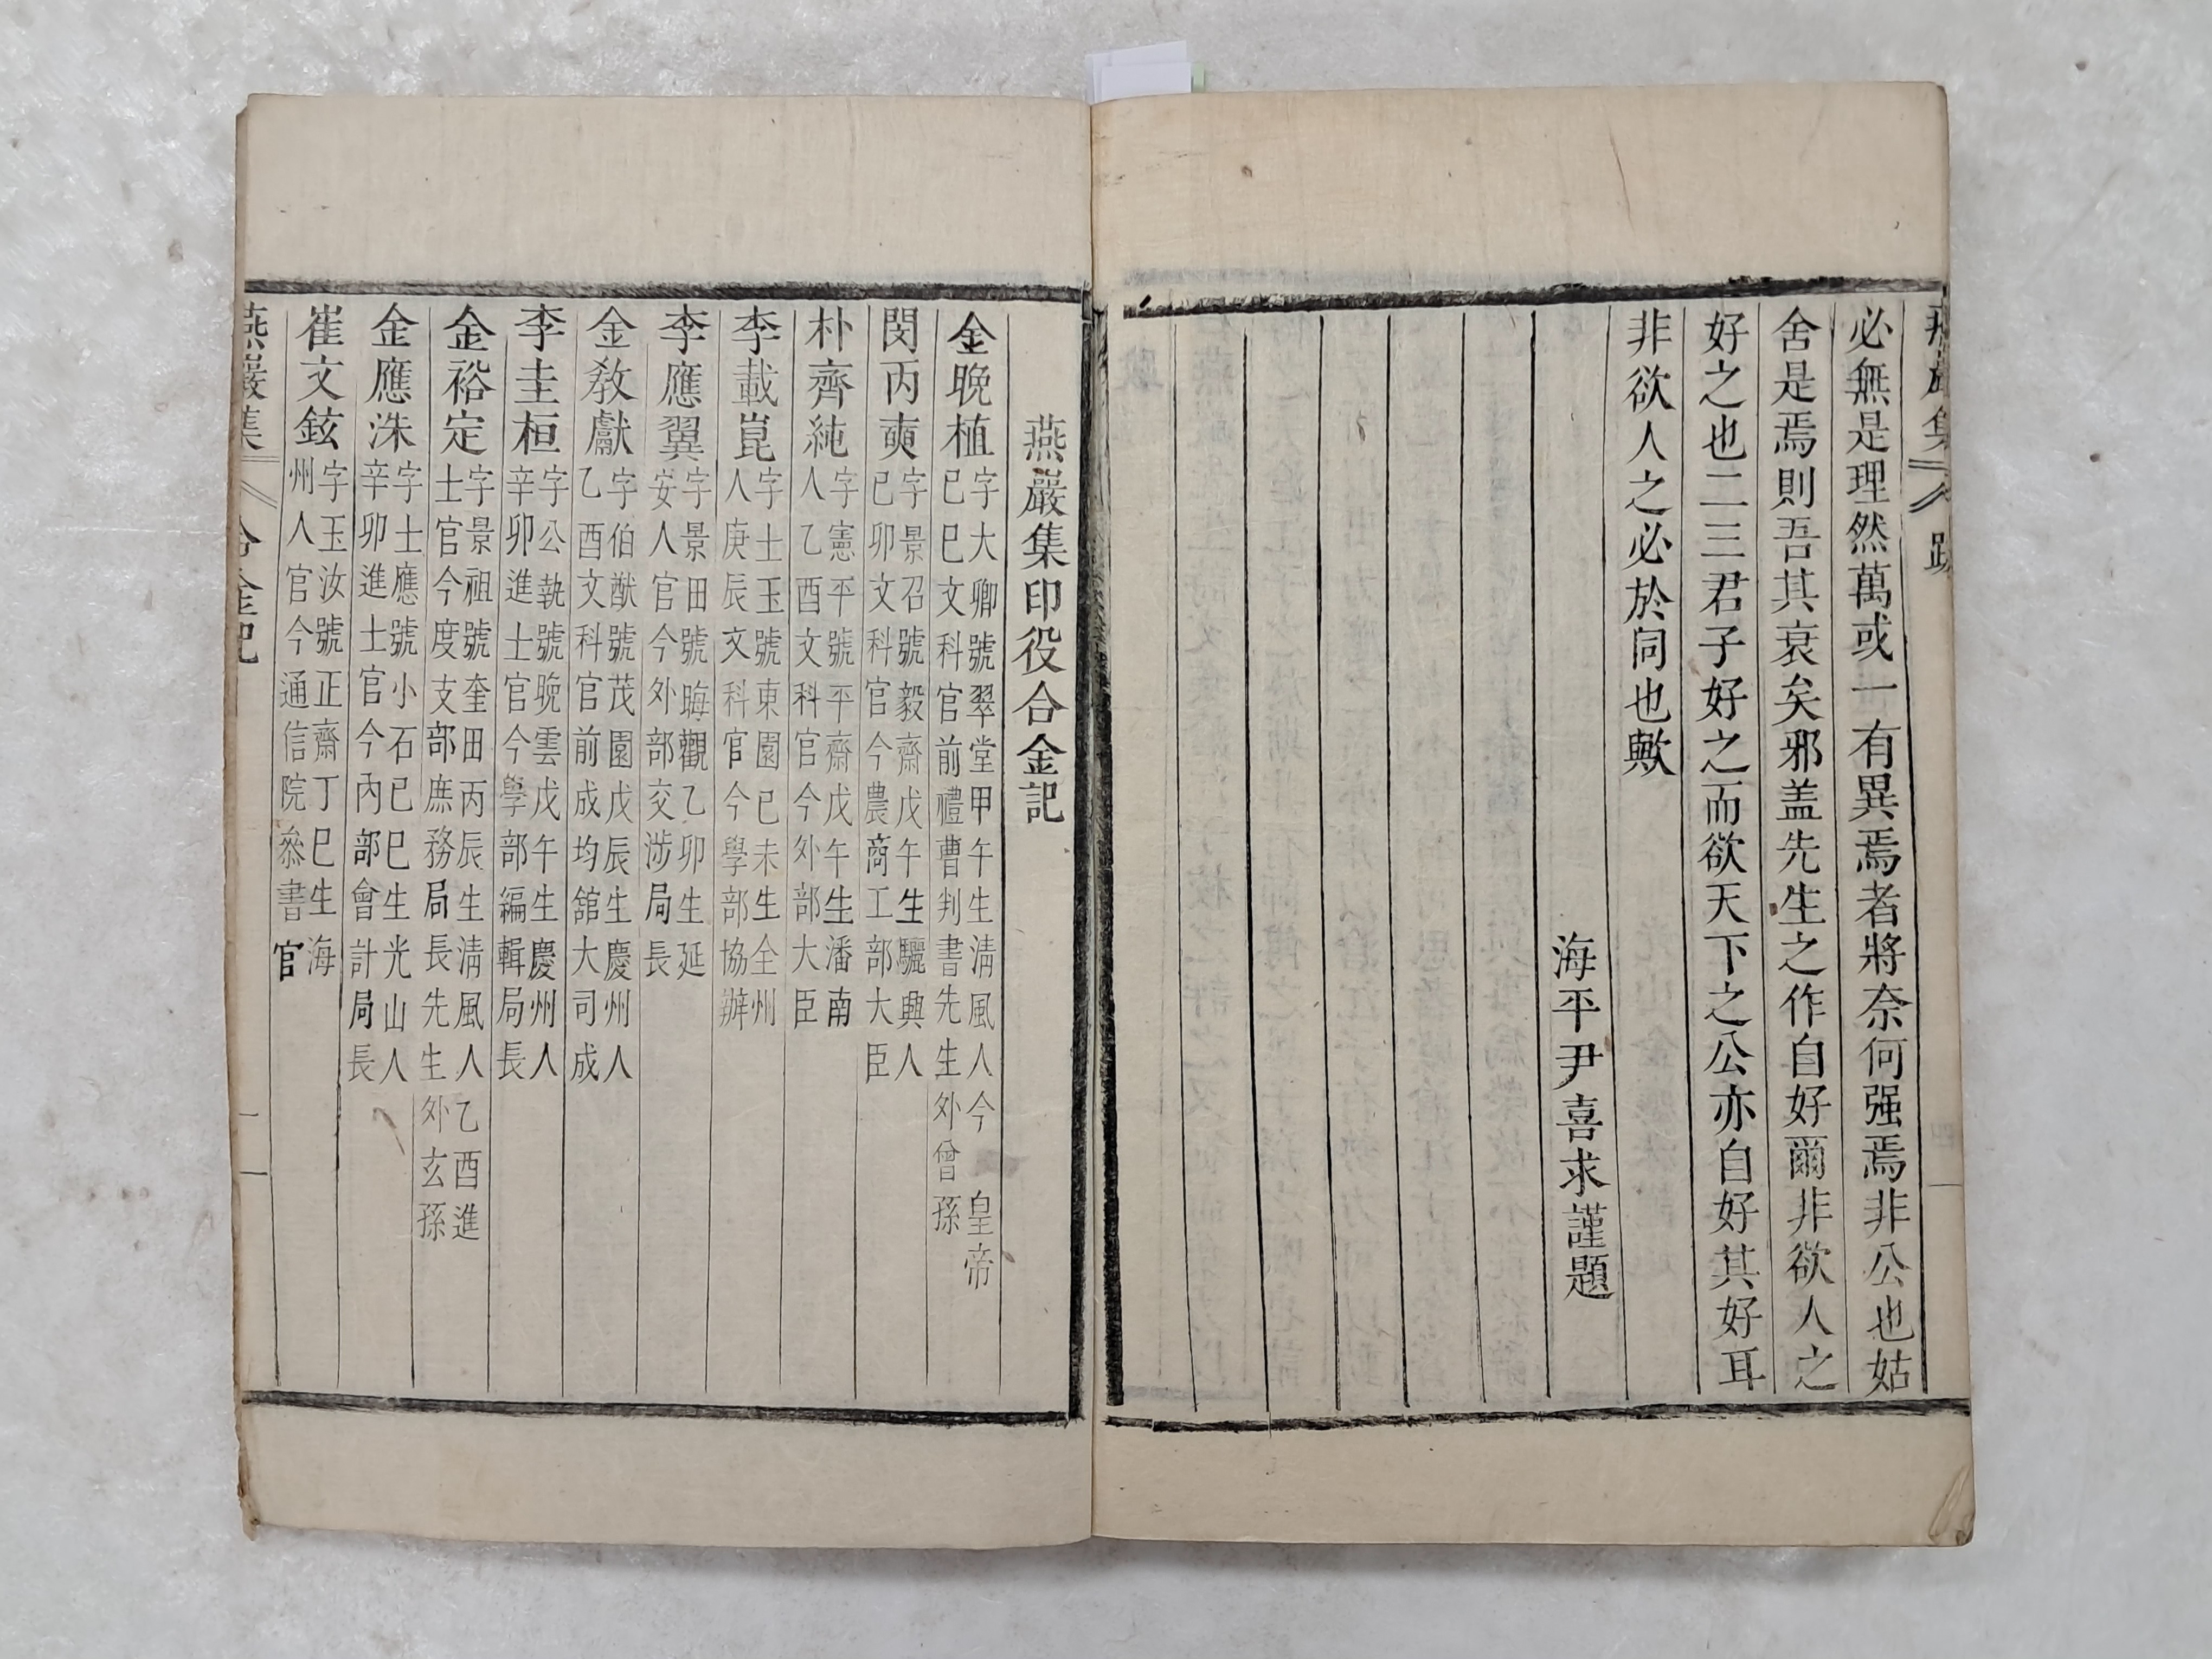 燕巖集 跋
必無是理然萬或一有異焉者將奈何强焉非公也姑
舍是焉則吾其衰矣邪盖先生之作自好爾非欲人之
好之也二三君子好之而欲天下之公亦自好其好耳
非欲人之必於同也歟
海平尹喜求謹題
燕巖集印役合金記
金晩植 字大卿號翠堂甲午生淸風人今 皇帝
己巳文科官前禮曹判書先生外曾孫
閔丙奭 字景召號毅齋戊午生驪興人
己卯文科官今農商工部大臣
朴齊純 字憲平號平齋戊午生潘南
人乙酉文科官今外部大臣
李載崑 字士玉號東園己未生全州
人庚辰文科官今學部協辦
李應翼 字景田號晦觀乙卯生延
安人官今外部交涉局長
金敎獻 字伯猷號茂園戊辰生慶州人
乙酉文科官前成均舘大司成
李圭桓 字公執號晩雲戊午生慶州人
辛卯進士官今學部編輯局長
金裕定 字景祖號奎田丙辰生淸風人乙酉進
士官今度支部庶務局長先生外玄孫
金應洙 字士應號小石己巳生光山人
辛卯進士官今內部會計局長
崔文鉉 字玉汝號正齋丁巳生海
州人官今通信院叅書官
燕巖集 合金記 一